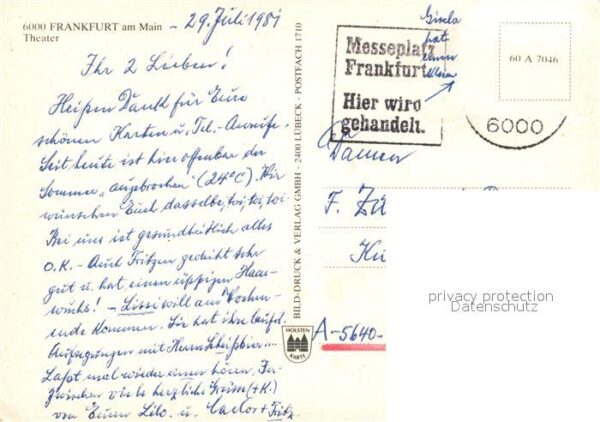 6000 FRANKFURT am Main
Theater
- 29. Juli 1981
Ihr 2 Lieben!
Heißen Dank für Eure
schönen Karten u. Tel.-Anrufe.
Seit heute ist hier offenbar der
Sommer „ausgebrochen" (24°C). Wir
wünschen Euch dasselbe, toi, toi, toi.
Bei uns ist gesundheitlich alles
O.K. - Auch Fritzen gedeiht sehr
gut u. hat einen üppigen Haar-
wuchs! - Lissi will am Wochen-
ende kommen. Sie hat ihre
Aufregungen mit Herrn
Laßt mal wieder einen hören. In-
zwischen viele herzliche Grüße (+K.)
von Euren Lilo. u. Carlos + Fritz.
BILD-DRUCK & VERLAG GMBH - 2400 LÜBECK - POSTFACH 1710
HOLSTEN
KARTE
Messeplatz
Frankfurt
Hier wird
gehandelt.
Gisela
hat
60 A 7046
6000
Damen
F.
A-5640-
privacy protection
Datenschutz